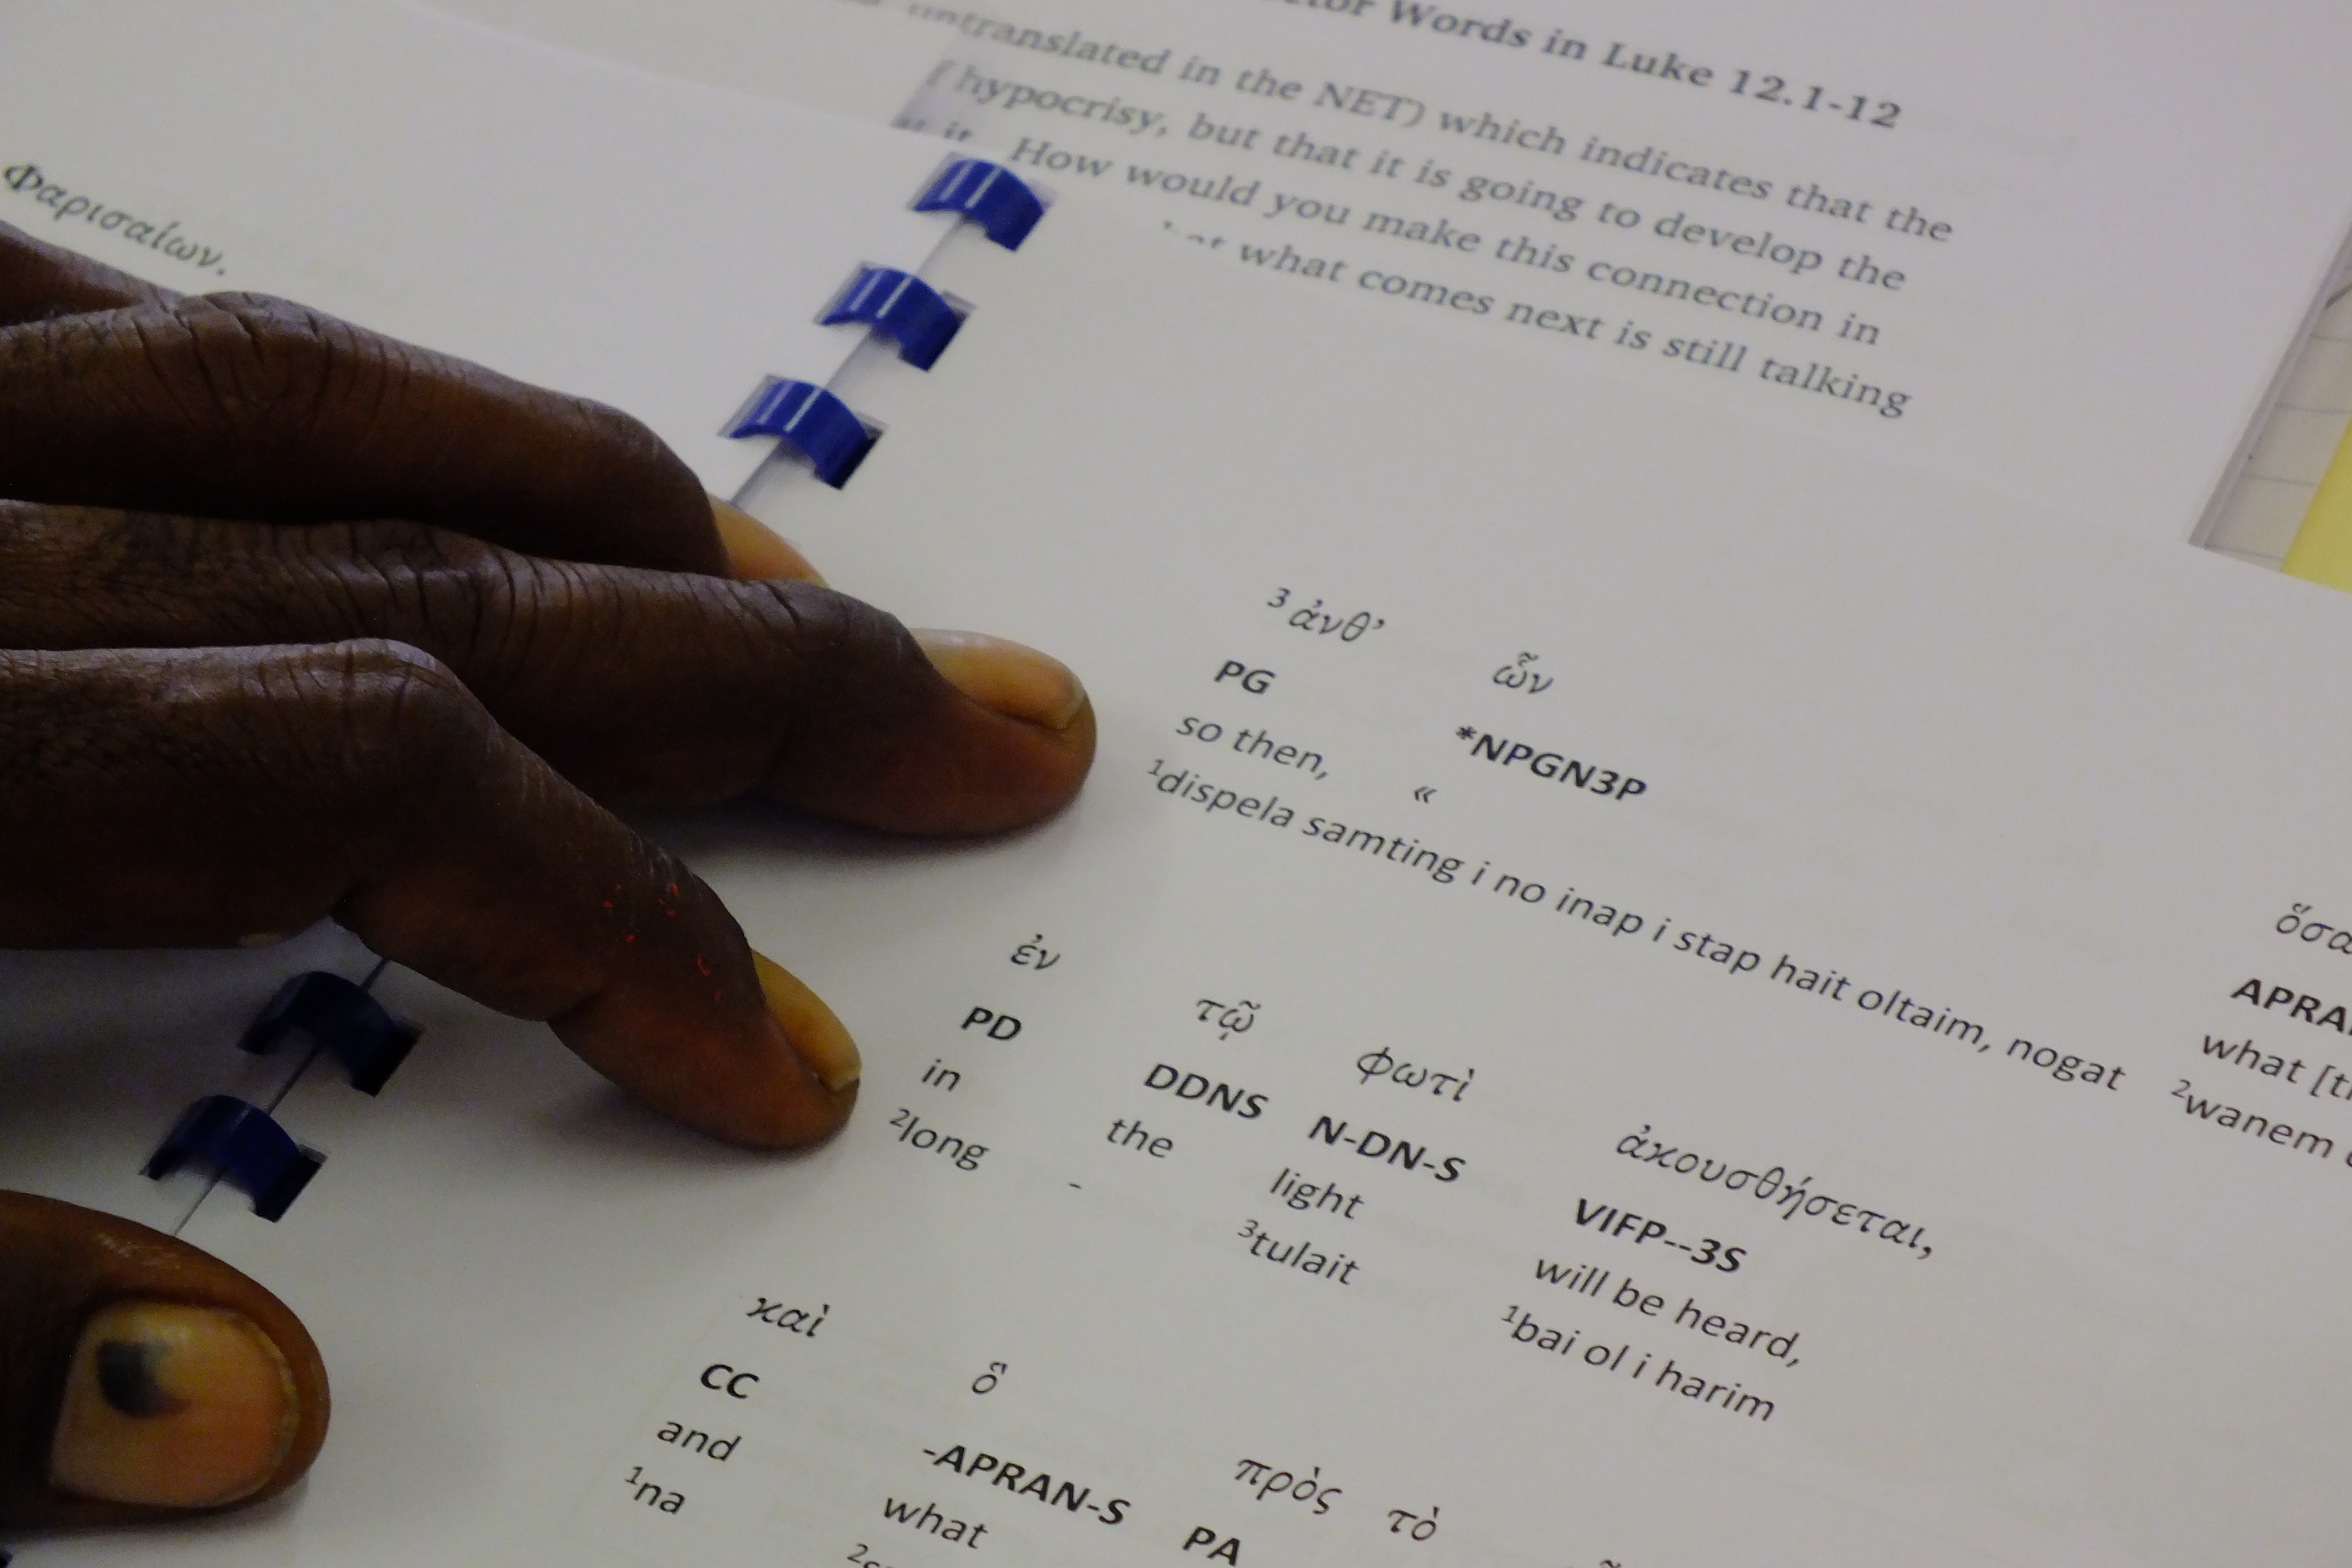 Words in Luke 12.1-12
untranslated in the NET) which indicates that the
hypocrisy, but that it is going to develop the
it. How would you make this connection in
what comes next is still talking
Φαρισαίων.
³ ἀνθ’ ὧν
PG *NPGN3P
so then, «
¹dispela samting i no inap i stap hait oltaim, nogat
what
²wanem
ἐν τῷ φωτὶ ἀκουσθήσεται,
PD DDNS N-DN-S VIFP--3S
in the light will be heard,
²long - ³tulait ¹bai ol i harim
καὶ ὃ πρὸς τὸ
CC -APRAN-S PA
and what
¹na